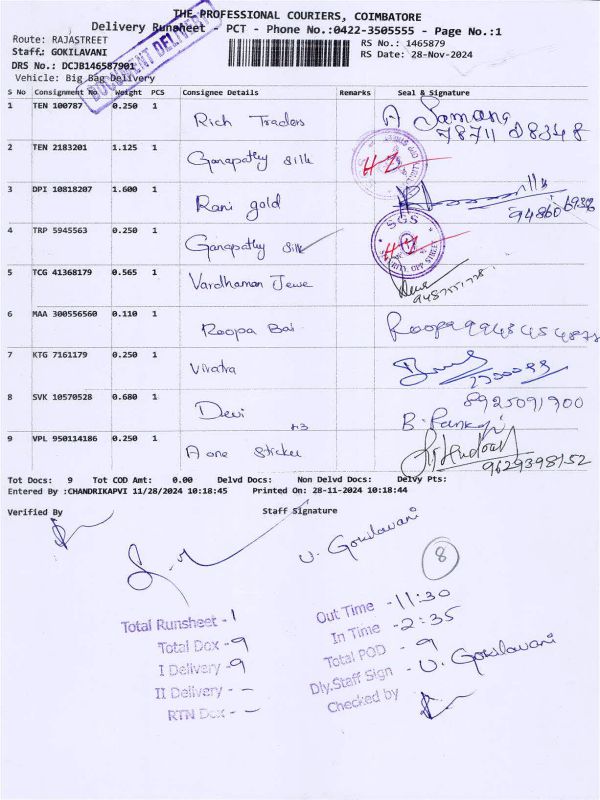 THE PROFESSIONAL COURIERS, COIMBATORE
Delivery Runsheet - PCT - Phone No.:0422-3505555 - Page No.:1
Route: RAJASTREET
RS No.: 1465879
Staff: GOKILAVANI
RS Date: 28-Nov-2024
DRS No.: DCJB146587901
Vehicle: Big Bag Delivery
DOCUMENT DELIVERY
S No Consignment No Weight PCS Consignee Details Remarks Seal & Signature
1 TEN 100787 0.250 1 Rich Traders
78711 08348
2 TEN 2183201 1.125 1 Ganapathy silk
3 DPI 10818207 1.600 1 Rani gold
4 TRP 5945563 0.250 1 Ganapathy Silk SGS
5 TCG 41368179 0.565 1 Vardhaman Jewe
6 MAA 300556560 0.110 1 Roopa Bai Roopa
7 KTG 7161179 0.250 1 Viratra
8 SVK 10570528 0.680 1 Devi 8925091700
9 VPL 950114186 0.250 1 A one Sticker 9629398152
Tot Docs: 9 Tot COD Amt: 0.00 Delvd Docs: Non Delvd Docs: Delvy Pts:
Entered By :CHANDRIKAPVI 11/28/2024 10:18:45 Printed On: 28-11-2024 10:18:44
Verified By Staff Signature
U. Gokilavani
8
Total Runsheet - 1
Total Dox - 9
I Delivery - 9
II Delivery - -
RTN Dox - -
Out Time - 11:30
In Time - 2:35
Total POD - 9
Dly.Staff Sign - U. Gokilavani
Checked by